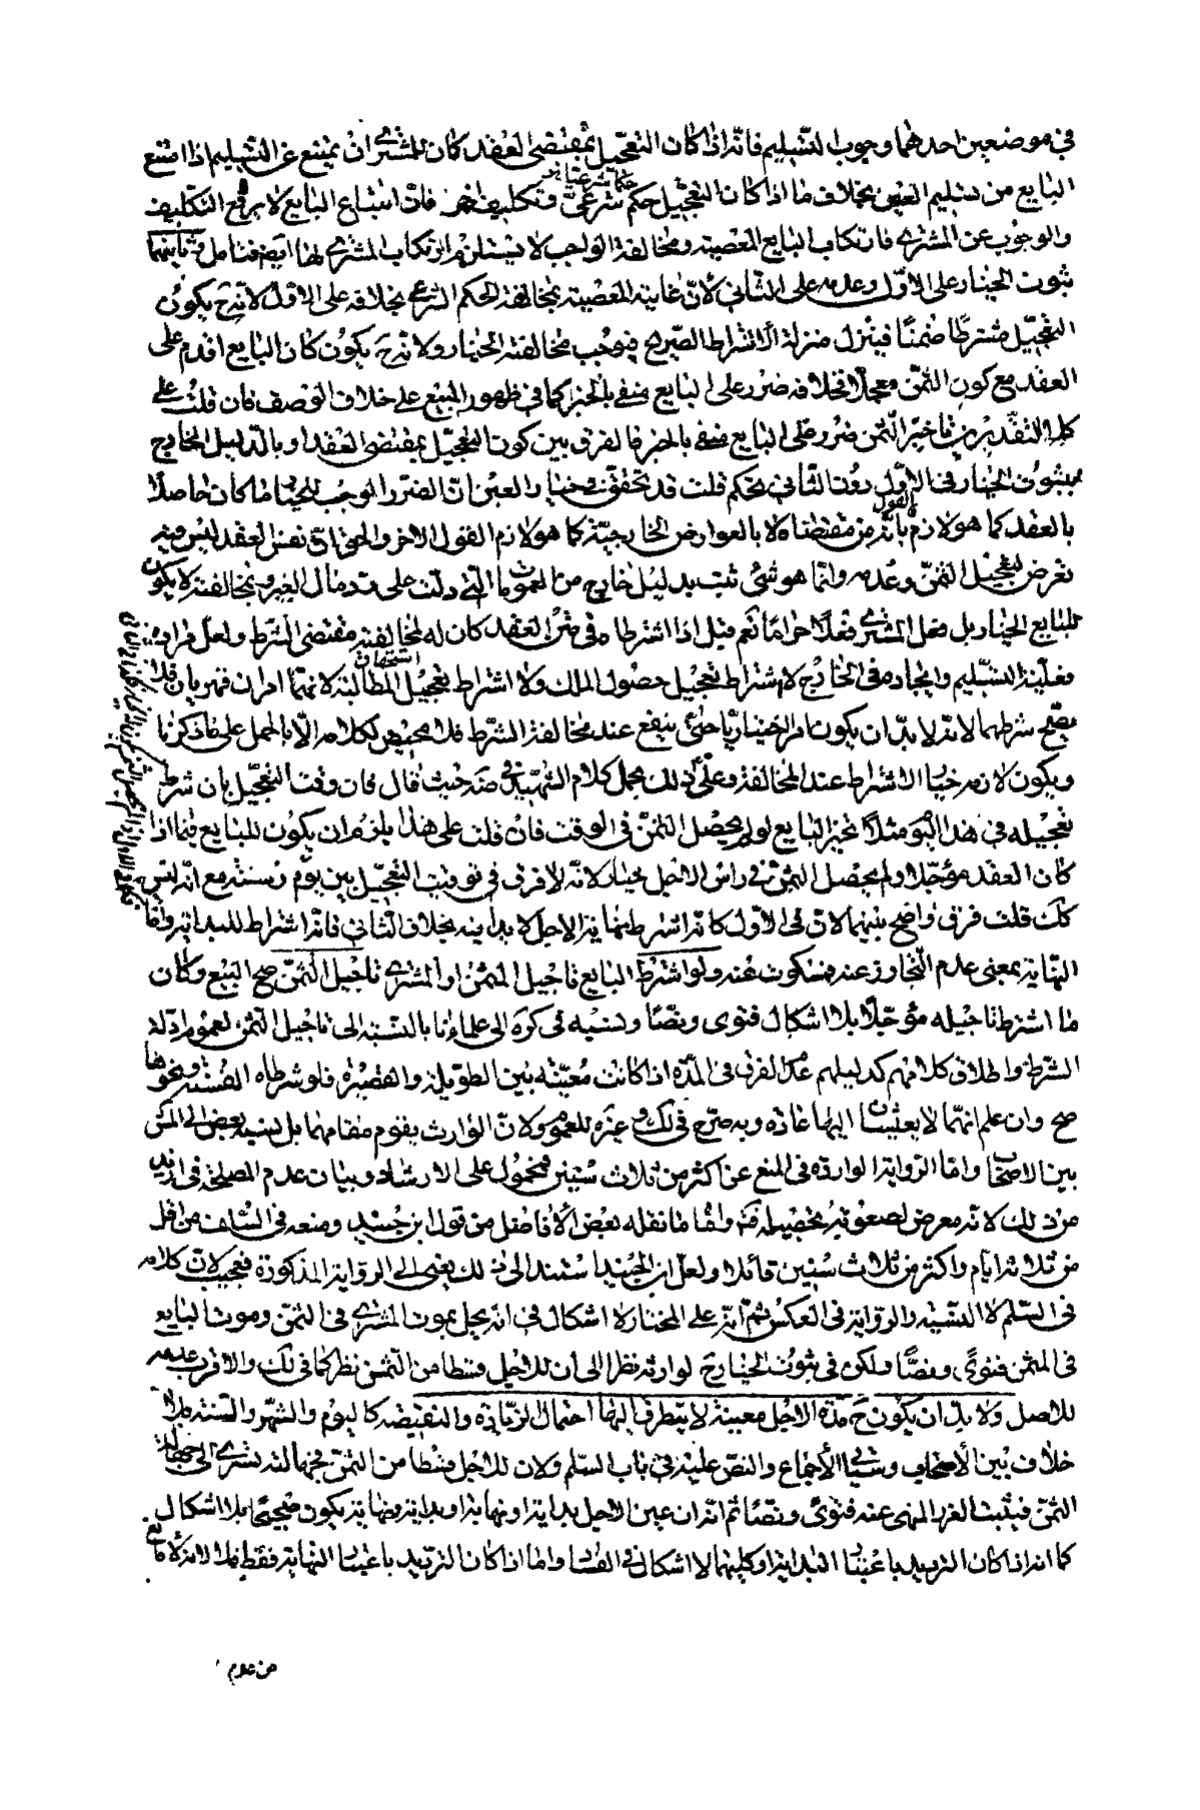 في موضعين احدهما وجوب التسليم فانه اذا كان التعجيل بمقتضى العقد كان للمشتري ان يمتنع عن التسليم اذا امتنع
البايع من تسليم العين بخلاف ما اذا كان التعجيل حكم شرعي وتكليف اخر فان امتناع البايع لا يرفع التكليف
والوجوب عن المشتري فارتكاب البايع المعصية ومخالفة الواجب لا يستلزم ارتكاب المشتري لها ايضا فتامل وثانيهما
ثبوت الخيار على الاول وعدمه على الثاني لان غاية المعصية بمخالفة الحكم الشرعي بخلافه على الاول لانه ح يكون
التعجيل مشترطا ضمنا فينزل منزلة الاشتراط الصريح فيوجب مخالفته الخيار ولانه ح يكون كان البايع اقدم على
العقد مع كون الثمن معجلا فخلافه ضرر على البايع منفي بالخبر كما في ظهور المبيع على خلاف الوصف فان قلت على
كلا التقديرين تاخير الثمن ضرر على البايع منفي بالخبر فالفرق بين كون التعجيل بمقتضى العقد او بالدليل الخارج
بثبوت الخيار في الاول دون الثاني تحكم قلت قد تحقق في خيار الغبن ان الضرر الموجب للخيار ما كان حاصلا
بالعقد كما هو لازم القول بانه من مقتضاه لا بالعوارض الخارجية كما هو لازم القول الاخر والحق ان نفس العقد ليس فيه
تعرض لتعجيل الثمن وعدمه وانما هو شئ ثبت بدليل خارج من العمومات التي دلت على رد مال الغير وبمخالفته لا يكون
للبايع الخيار بل فعل المشتري فعلا حراما نعم قيل اذا اشترطاه في ضمن العقد كان له لمخالفته مقتضى الشرط ولعل مراده
فعلية التسليم وايجاده في الخارج لا اشتراط تعجيل حصول الملك ولا اشتراط تعجيل استحقاق المطالبة لانهما امران قهريان فلا
يصح شرطهما لانه لا بد ان يكون امرا اختياريا حتى ينفع عند مخالفة الشرط فلا محيص لكلامه الا بالحمل على ما ذكرنا
ويكون لازمه خيار الاشتراط عند المخالفة وعلى ذلك يحمل كلام الشهيد في ضه حيث قال فان وقت التعجيل بان شرط
تعجيله في هذا اليوم مثلا تخير البايع لو لم يحصل الثمن في الوقت فان قلت على هذا يلزم ان يكون للبايع فيما اذا
كان العقد مؤجلا ولم يحصل الثمن في راس الاجل خيار لانه لا فرق في توقيت التعجيل بين يوم وسنة مع انه ليس
كك قلت فرق واضح بينهما لان في الاول كانه اشترط نهاية الاجل لا بدايته بخلاف الثاني فانه اشتراط للبداية واما
النهاية بمعنى عدم التجاوز عنه فمسكوت عنه ولو اشترط البايع تاجيل المثمن او المشتري تاجيل الثمن صح البيع وكان
ما اشترط تاجيله مؤجلا بلا اشكال فتوى ونصا ونسبه في كره الى علمائنا بالنسبة الى تاجيل الثمن لعموم ادلة
الشرط واطلاق كلامهم كدليلهم عدم الفرق في المدة اذا كانت معينة بين الطويلة والقصيرة فلو شرطاه الف سنة ونحوها
صح وان علم انهما لا يعيشان اليها عادة وبه صرح في لك وغيره للعموم ولان الوارث يقوم مقامهما بل نسبه بعض الى المش
بين الاصحاب واما الرواية الواردة في المنع عن اكثر من ثلاث سنين فمحمول على الارشاد وبيان عدم المصلحة في ازيد
من ذلك لانه معرض لصعوبة تحصيله واما ما نقله بعض الافاضل من قول ابن جنيد ومنعه في السلف من اقل
من ثلاثة ايام واكثر من ثلاث سنين قائلا ولعل ابن الجنيد استند الى ذلك يعني الى الرواية المذكورة فعجيب لان كلامه
في السلم لا النسية والرواية في العكس ثم انه على المختار لا اشكال في انه يحل بموت المشتري في الثمن وموت البايع
في المثمن فتوى ونصا ولكن في ثبوت الخيار ح لوارثه نظرا الى ان للاجل قسطا من الثمن نظر كما في لك والاقرب عدمه
للاصل ولا بد ان يكون ح مدة الاجل معينة لا يتطرق اليها احتمال الزيادة والنقيصة كاليوم والشهر والسنة بلا
خلاف بين الاصحاب وسياتي الاجماع والنص عليه في باب السلم ولان للاجل قسطا من الثمن فجهالته تسري الى جهالة
الثمن فيثبت الغرر المنهي عنه فتوى ونصا ثم انه ان عين الاجل بداية او نهاية او بداية ونهاية يكون صحيحا بلا اشكال
كما انه اذا كان الترديد باعتبار البداية او كليهما لا اشكال في الفساد واما اذا كان الترديد باعتبار النهاية فقط فلا لانه لا مانع
من عدم